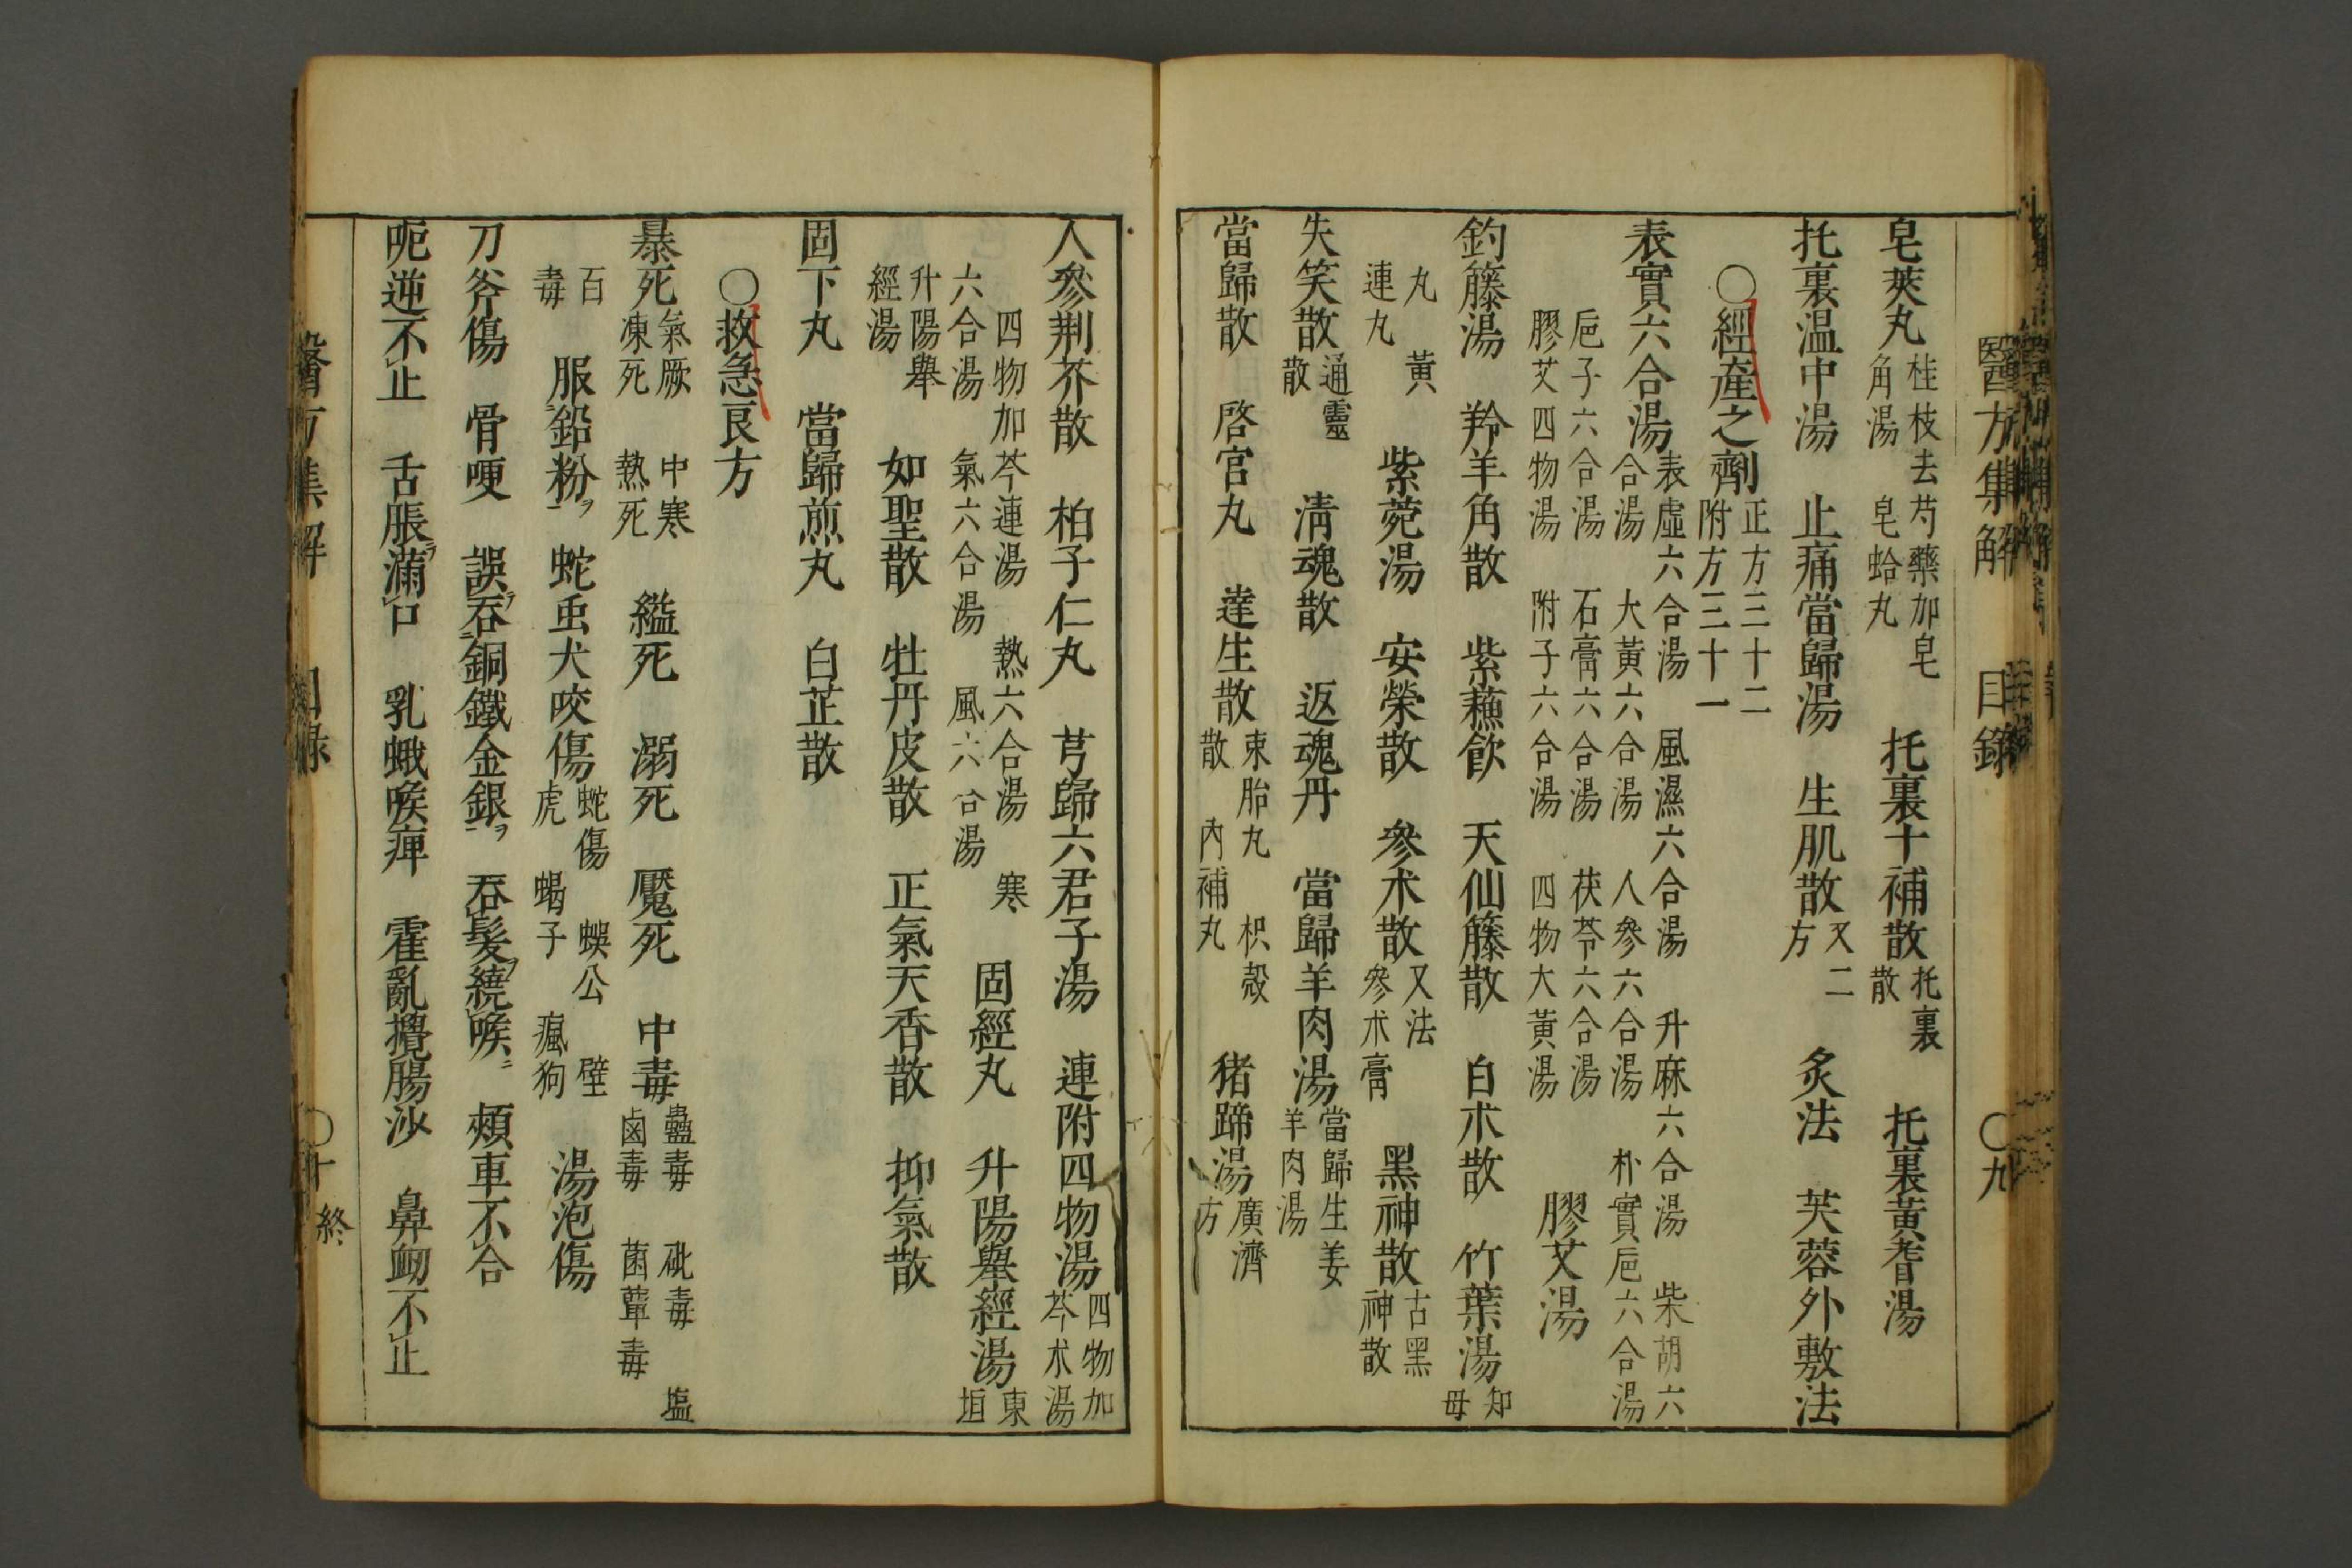 醫方集解 目錄 〇九
皂莢丸 桂枝去芍藥加皂角湯 皂蛤丸 托裏十補散 托裏散 托裏黃耆湯
托裏温中湯 止痛當歸湯 生肌散 又二方 炙法 芙蓉外敷法
〇經產之劑 正方三十二 附方三十一
表實六合湯 表虛六合湯 風濕六合湯 升麻六合湯 柴胡六合湯 大黃六合湯 人參六合湯 朴實梔六合湯
梔子六合湯 石膏六合湯 茯苓六合湯 膠艾四物湯 附子六合湯 四物大黃湯 膠艾湯
釣藤湯 羚羊角散 紫蘓飲 天仙藤散 白朮散 竹葉湯 知母
丸 黃連丸 紫菀湯 安榮散 參朮散 又法 參朮膏 黑神散 古黑神散
失笑散 通靈散 清魂散 返魂丹 當歸羊肉湯 當歸生姜羊肉湯
當歸散 啓宫丸 達生散 束胎丸 枳殼散 內補丸 猪蹄湯 廣濟方
人參荆芥散 柏子仁丸 芎歸六君子湯 連附四物湯 四物加芩朮湯
四物加芩連湯 熱六合湯 寒六合湯 氣六合湯 風六合湯 固經丸 升陽舉經湯 東垣
升陽舉經湯 如聖散 牡丹皮散 正氣天香散 抑氣散
固下丸 當歸煎丸 白芷散
〇救急良方
暴死 氣厥 中寒 凍死 熱死 縊死 溺死 魘死 中毒 蠱毒 砒毒 塩鹵毒 菌蕈毒
百毒 服鉛粉ヲ 蛇虫犬咬傷 蛇傷 蜈公 壁虎 蝎子 瘋狗 湯泡傷
刀斧傷 骨哽 誤吞銅鐵金銀ヲ 吞髮ヲ繞喉ニ 頰車不合
呃逆不止 舌脹滿口 乳蛾喉痺 霍亂攪腸沙 鼻衂不止
醫方集解 目錄 〇十終